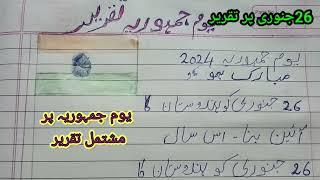 26جنوری پر تقریر
یوم جمہوریہ تقریر
یوم جمہوریہ 2024
مبارک ہو
26 جنوری کو ہندوستان کا
آئین بنا۔ اس سال
26 جنوری کو ہندوستان کا
یوم جمہوریہ پر
مشتمل تقریر